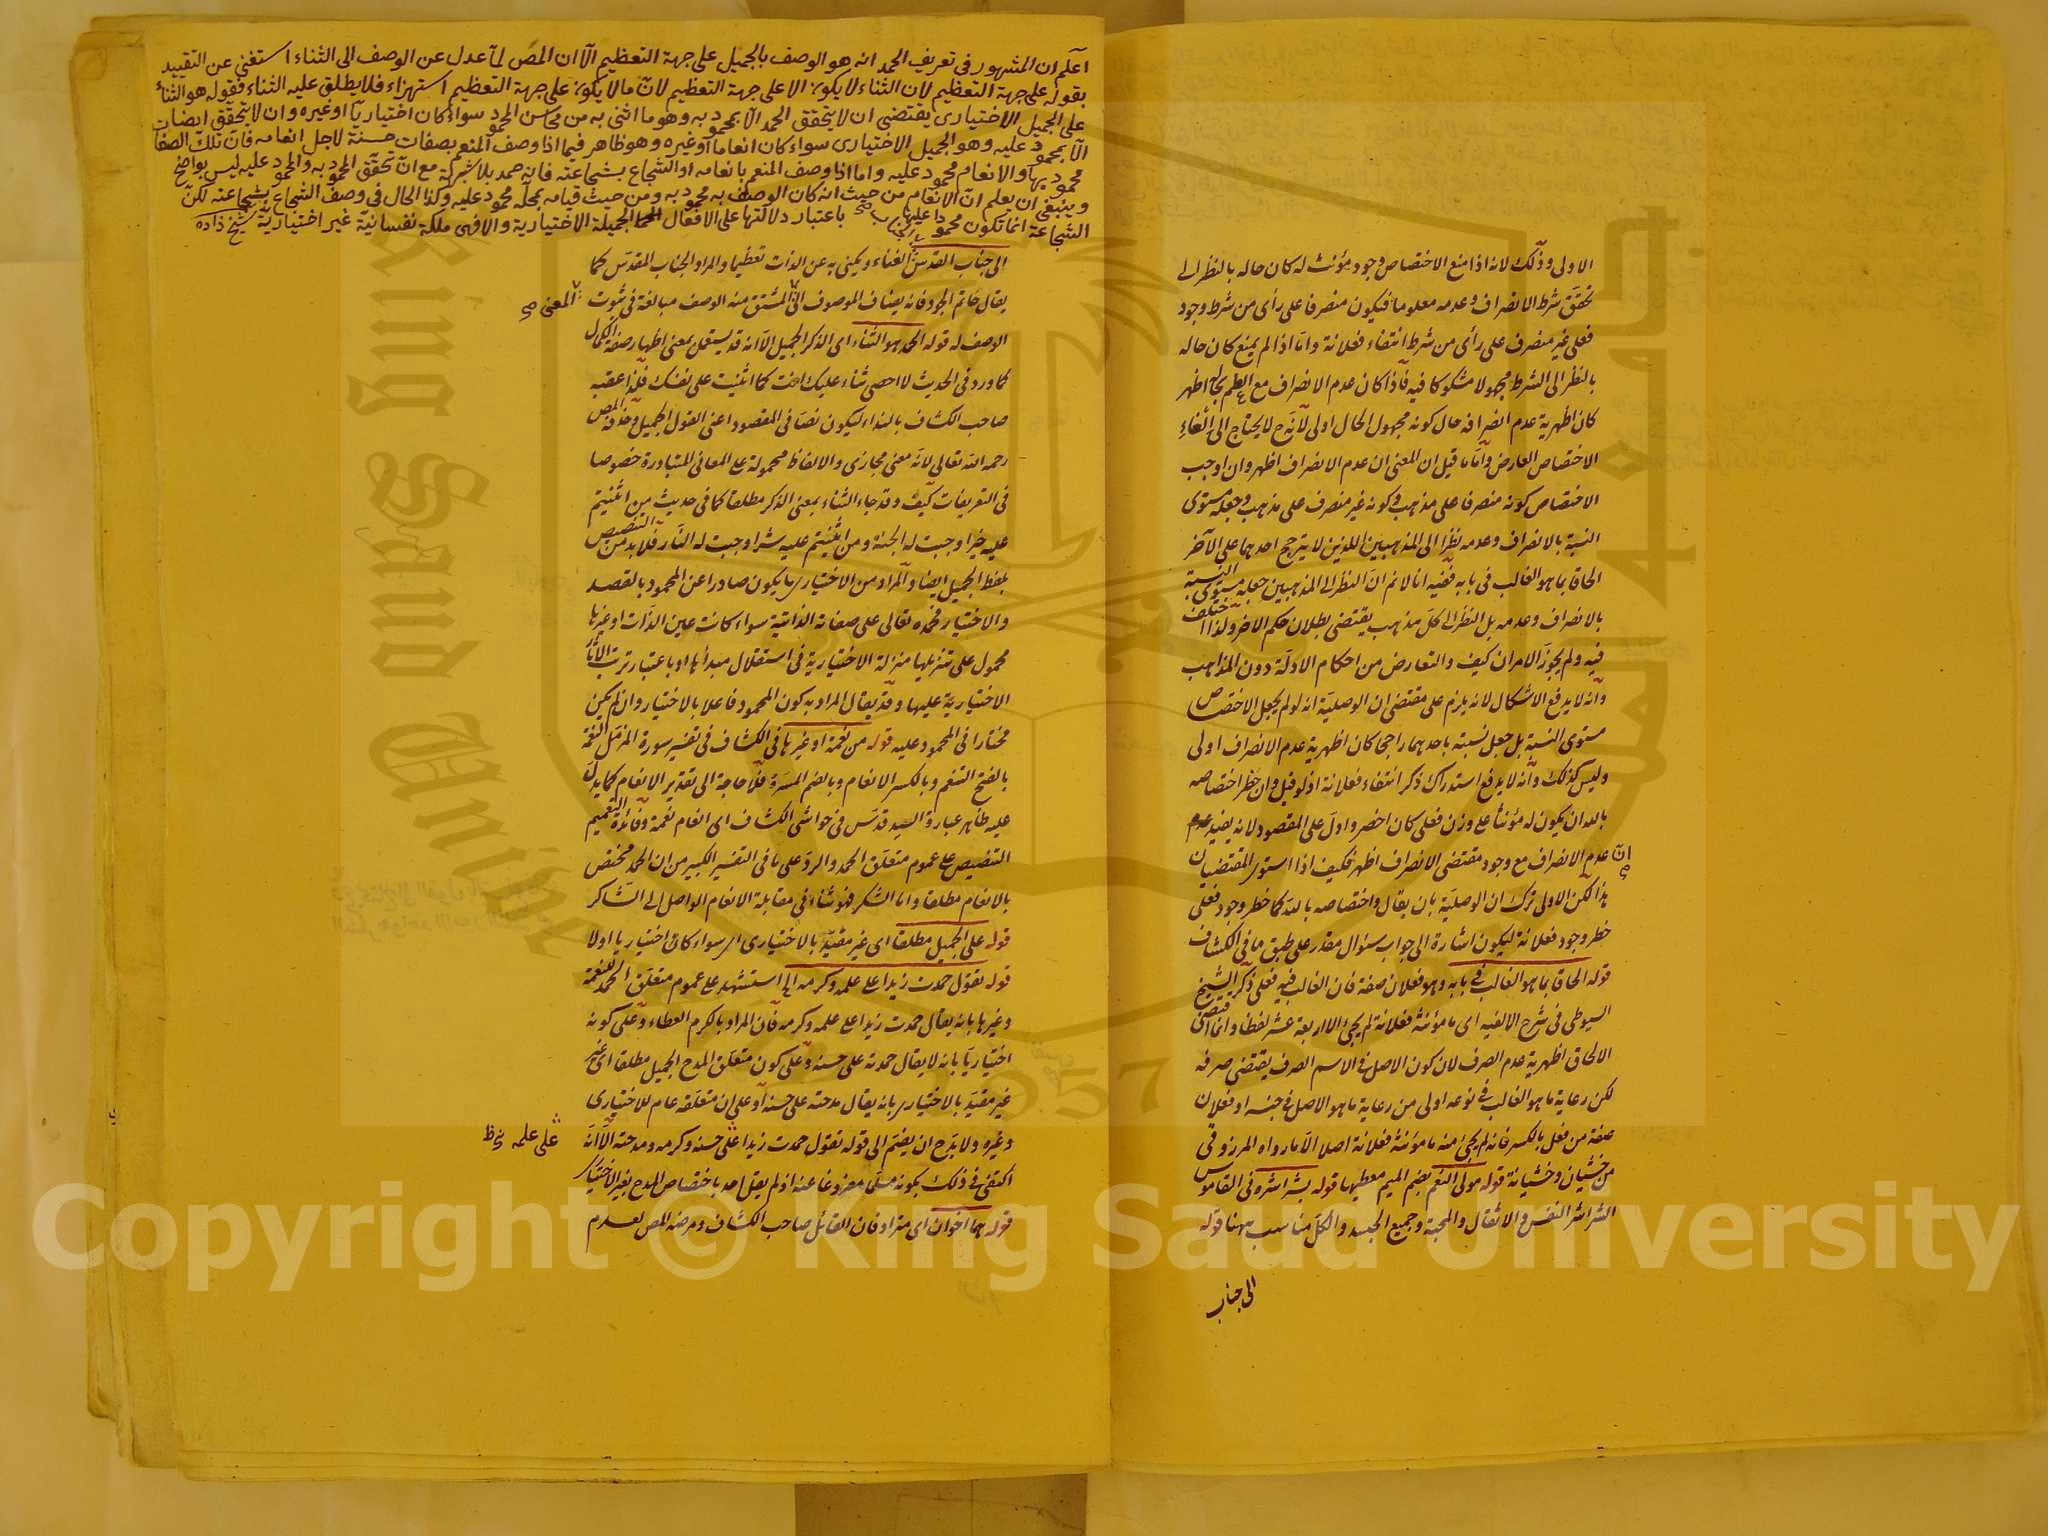 الاولى وذلك لانه اذا منع الاختصاص وجود مؤنث له كان حاله بالنظر الى
تحقق شرط الانصراف وعدمه معلوما فيكون منصرفا على رأى من شرط وجود
فعلى غير منصرف على رأى من شرط انتفاء فعلانة واما اذا لم يمنع كان حاله
بالنظر الى الشرط مجهولا مشكوكا فيه فاذا كان عدم الانصراف مع العلم بحاله اظهر
كان اظهرية عدم انصرافه حال كونه مجهول الحال اولى لانه ح لا يحتاج الى الغاء
الاختصاص العارض واما ما قيل ان المعنى ان عدم الانصراف اظهر وان اوجب
الاختصاص كونه منصرفا على مذهب وكونه غير منصرف على مذهب وجعله مستوى
النسبة بالانصراف وعدمه نظرا الى المذهبين اللذين لا يترجح احدهما على الآخر
الحاقا بما هو الغالب في بابه ففيه انا لا نم ان النظر الى المذهبين جعله مستوى النسبة
بالانصراف وعدمه بل النظر الى كل مذهب يقتضى بطلان حكم الاخر ولذا اختلف
فيه ولم يجوز الامران كيف والتعارض من احكام الادلة دون المذاهب
وانه لا يدفع الاشكال لانه يلزم على مقتضى ان الوصلية انه لو لم يجعل الاختصاص
مستوى النسبة بل جعل نسبته باحدهما راجحا كان اظهرية عدم الانصراف اولى
وليس كذلك وانه لا يدفع استدراك ذكر انتفاء فعلانة اذ لو قيل وان حظر اختصاصه
بالله ان يكون له مؤنثا على وزن فعلى كان اخصر وادل على المقصود لانه يفيد
ان عدم الانصراف مع وجود مقتضى الانصراف اظهر فكيف اذا استوى المقتضيان
هذا لكن الاولى ترك ان الوصلية بان يقال واختصاصه بالله كما حظر وجود فعلى
حظر وجود فعلانة ليكون اشارة الى جواب سئوال مقدر على طبق ما في الكشاف
قوله الحاقا بما هو الغالب في بابه وهو فعلان صفة فان الغالب فيه فعلى ذكر الشيخ
السيوطى في شرح الالفيه اى ما مؤنثة فعلانة لم يجئ الا اربعة عشر لفظا وانما اقتضى
الالحاق اظهرية عدم الصرف لان كون الاصل في الاسم الصرف يقتضى صرفه
لكن رعاية ما هو الغالب في نوعه اولى من رعاية ما هو الاصل في جنسه او فعلان
صفة من فعل بالكسر فانه لم يجئ منه ما مؤنثة فعلانة اصلا الا ما رواه المرزوقى
من خشيان وخشيانة قوله مولى النعم بضم الميم معطيها قوله بشراشره في القاموس
الشراشر النفس والاثقال والمحبة وجميع الجسد والكل مناسب ههنا قوله
الى جناب
اعلم ان المشهور في تعريف الحمد انه هو الوصف بالجميل على جهة التعظيم الا ان المص لما عدل عن الوصف الى الثناء استغنى عن التقييد
بقوله على جهة التعظيم لان الثناء لا يكون الا على جهة التعظيم لان ما لا يكون على جهة التعظيم استهزاء فلا يطلق عليه الثناء فقوله هو الثناء
على الجميل الاختيارى يقتضى ان لا يتحقق الحمد الا بمحمود به وهو ما اثنى به من محاسن المحمود سواء كان اختياريا او غيره وان لا يتحقق ايضا
الا بمحمود عليه وهو الجميل الاختيارى سواء كان انعاما او غيره وهو ظاهر فيما اذا وصف المنعم بصفات حسنة لاجل انعامه فان تلك الصفات
محمود بها والانعام محمود عليه واما اذا وصف المنعم بانعامه او الشجاع بشجاعته فانه حمد بلا شركة مع ان تحقق المحمود به والمحمود عليه ليس بواضح
وينبغى ان يعلم ان الانعام من حيث انه كان الوصف به محمود به ومن حيث قيامه بمحله محمود عليه وكذا الحال في وصف الشجاع بشجاعته لكن
الشجاعة انما تكون محمودا عليها باعتبار دلالتها على الافعال الجميلة الاختيارية والا فهى ملكة نفسانية غير اختيارية شيخ زاده
الى جناب القدس الفناء ويكنى به عن الذات تعظيما والمراد الجناب المقدس كما
يقال حاتم الجود فانه يضاف الموصوف الى المشتق منه الوصف مبالغة في ثبوت
المعنى
الوصف له قوله الحمد هو الثناء اى الذكر الجميل الا انه قد يستعمل بمعنى اظهار صفة الكمال
كما ورد في الحديث لا احصى ثناء عليك انت كما اثنيت على نفسك فلذا عقبه
صاحب الكشاف بالنداء ليكون نصا في المقصود اعنى القول الجميل وحذفه المص
رحمه الله تعالى لانه معنى مجازى والالفاظ محمولة على المعانى المتبادرة خصوصا
في التعريفات كيف وقد جاء الثناء بمعنى الذكر مطلقا كما في حديث من اثنيتم
عليه خيرا وجبت له الجنة ومن اثنيتم عليه شرا وجبت له النار فلا بد من التنصيص
بلفظ الجميل ايضا والمراد من الاختيارى ما يكون صادرا عن المحمود بالقصد
والاختيار فحمده تعالى على صفاته الذاتية سواء كانت عين الذات او غيرها
محمول على تنزيلها منزلة الاختيارية في استقلال مبدأها او باعتبار ترتب الآثار
الاختيارية عليها وقد يقال المراد به كون المحمود فاعلا بالاختيار وان لم يكن
مختارا في المحمود عليه قوله من نعمة او غيرها في الكشاف في تفسير سورة المزمل النعمة
بالفتح التنعم وبالكسر الانعام وبالضم المسرة فلا حاجة الى تقدير الانعام كما يدل
عليه ظاهر عبارة السيد قدس في حواشى الكشاف اى انعام نعمة وفائدة التعميم
التنصيص على عموم متعلق الحمد والرد على ما في التفسير الكبير من ان الحمد مختص
بالانعام مطلقا واما الشكر فهو ثناء في مقابلة الانعام الواصل الى الشاكر
قوله على الجميل مطلقا اى غير مقيد بالاختيارى اى سواء كان اختياريا او لا
قوله تقول حمدت زيدا على علمه وكرمه الخ استشهد على عموم متعلق الحمد للنعمة
وغيرها بانه يقال حمدت زيدا على علمه وكرمه فان المراد بالكرم العطاء وعلى كونه
اختياريا بانه لا يقال حمدته على حسنه وعلى كون متعلق المدح الجميل مطلقا اى
غير مقيد بالاختيارى بانه يقال مدحته على حسنه او على ان متعلقه عام للاختيارى
وغيره ولا بد ح ان يضم الى قوله تقول حمدت زيدا على حسنه وكرمه ومدحته الا انه
على علمه
اكتفى في ذلك بكونه مسلما مفروغا عنه اذ لم يقل احد باختصاص المدح بغير الاختيارى
قوله هما اخوان اى مترادفان القائل صاحب الكشاف ومرضه المص لعدم
King Saud University
1957
Copyright © King Saud University